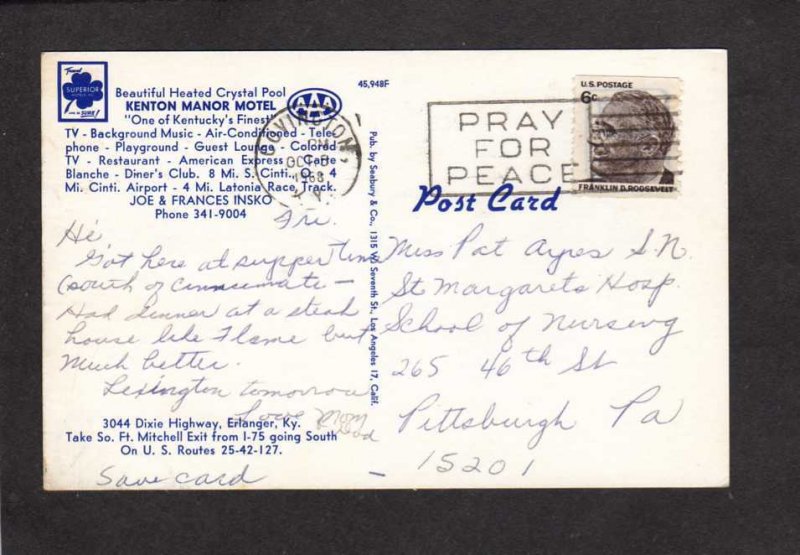 Travel
SUPERIOR
Beautiful Heated Crystal Pool
KENTON MANOR MOTEL
"One of Kentucky's Finest"
TV - Background Music - Air-Conditioned - Tele-
phone - Playground - Guest Lounge - Colored
TV - Restaurant - American Express - Carte
Blanche - Diner's Club. 8 Mi. S. Cinti., O. - 4
Mi. Cinti. Airport - 4 Mi. Latonia Race Track.
JOE & FRANCES INSKO
Phone 341-9004
AAA
45,948F
COVINGTON,
PM
OCT
1968
PRAY
FOR
PEACE
U.S. POSTAGE
6c
FRANKLIN D. ROOSEVELT
Post Card
Pub. by Seabury & Co., 1315 W. Seventh St., Los Angeles 17, Calif.
Fri.
Hi
Got here at supper time
(south of Cinncinnate -
Had dinner at a steak
house like Flame but
much better.
Lexington tomorrow
Love Mom
Dad
3044 Dixie Highway, Erlanger, Ky.
Take So. Ft. Mitchell Exit from I-75 going South
On U. S. Routes 25-42-127.
Save card
Miss Pat Ayres S.N.
St Margarets Hosp.
School of Nursing
265 46th St
Pittsburgh Pa
15201